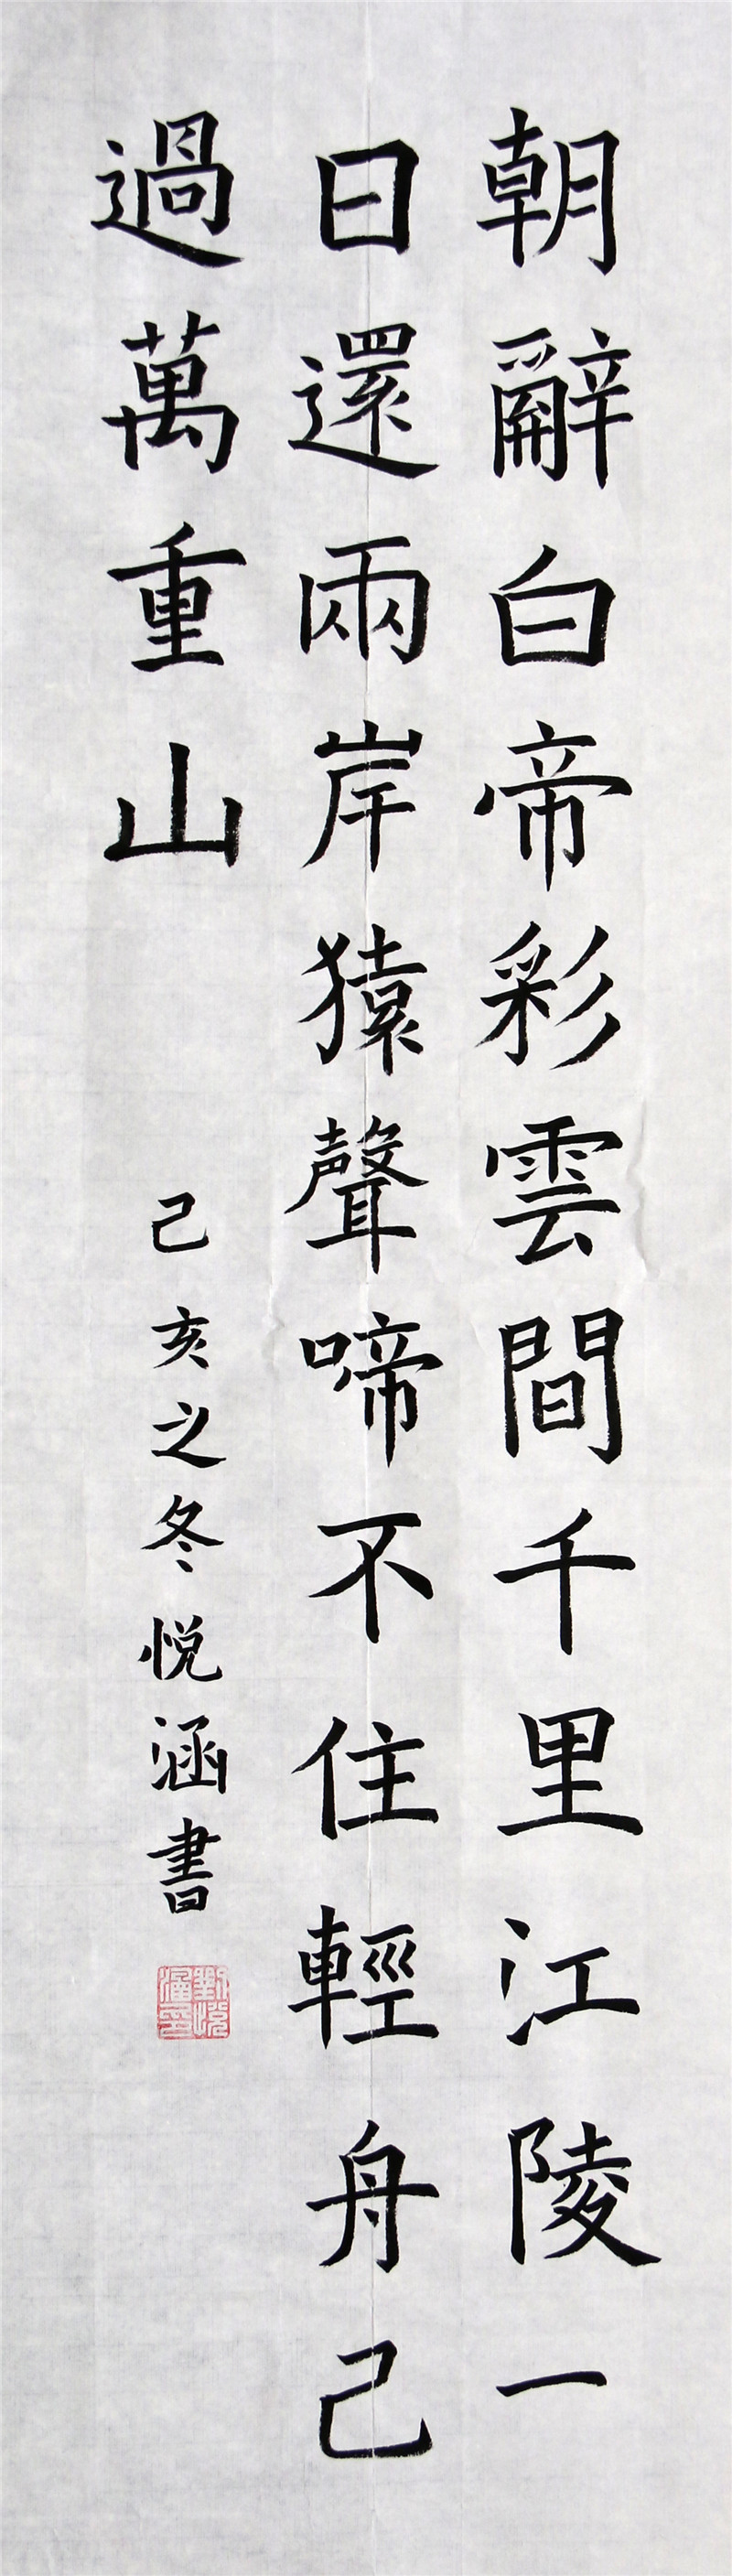 朝辭白帝彩雲間千里江陵一
日還兩岸猿聲啼不住輕舟己
過萬重山
己亥之冬悦涵書
劉悦
涵印